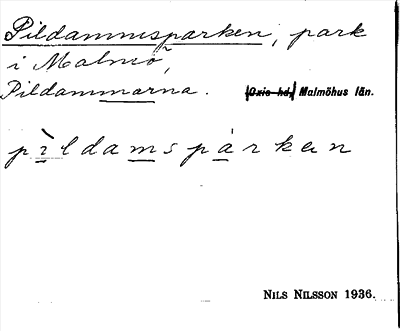 Pildammsparken, park
i Malmö,
Pildammarna. Oxie hd, Malmöhus län.
pìldamspàrken
NILS NILSSON 1936.